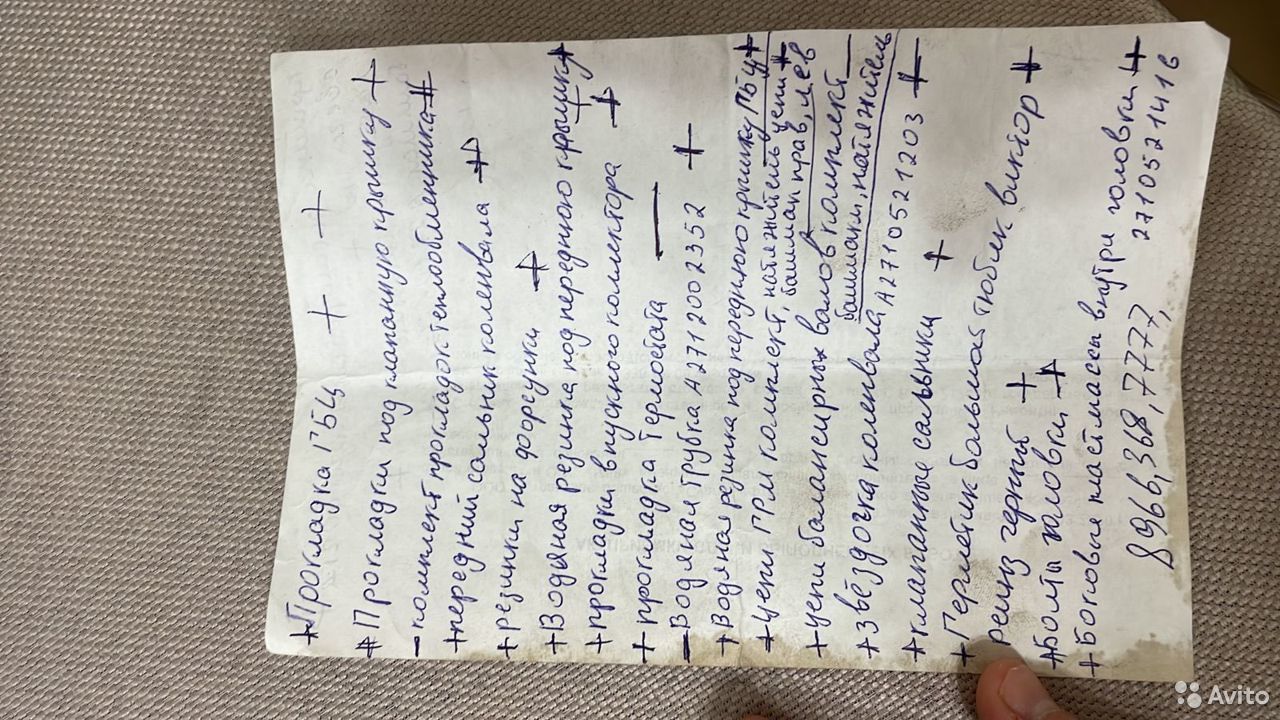 + Прокладка ГБЦ + +
# Прокладки под клапанную крышку +
- комплект прокладок теплообменника #
+ передний сальник коленвала #
+ резинки на форсунки #
+ Водяная резинка под переднюю крышку +
+ прокладки впускного коллектора #
+ прокладка Термостата —
— Водяная трубка А2712002352 +
+ Водяная резинка под переднюю крышку ГБЦ +
+ цепи ГРМ комплект, натяжитель цепи #
башмак прав, лев
+ цепи балансирных валов комплект —
башмаки, натяжитель
+ Звёздочка коленвала А2710521203 +
# клапанные сальники +
+ Герметик большой тюбик виктор #
реинз черный +
# Болты головки +
+ Боковые пластмассы внутри головки #
8966,368,7777, 2710521416
Avito